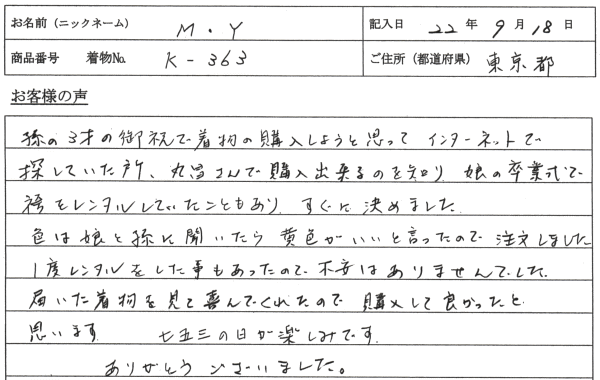 お名前（ニックネーム） M・Y 記入日 22年9月18日
商品番号 着物No. K-363 ご住所（都道府県） 東京都
お客様の声
孫の3才の御祝で着物の購入しようと思って インターネットで
探していた所、丸昌さんで購入出来るのを知り 娘の卒業式で
袴をレンタルしていたこともあり すぐに決めました
色は娘と孫に聞いたら 黄色がいいと言ったので 注文しました
1度レンタルをした事もあったので 不安はありませんでした
届いた着物を見て喜んでくれたので 購入して良かったと
思います 七五三の日が楽しみです
ありがとうございました。